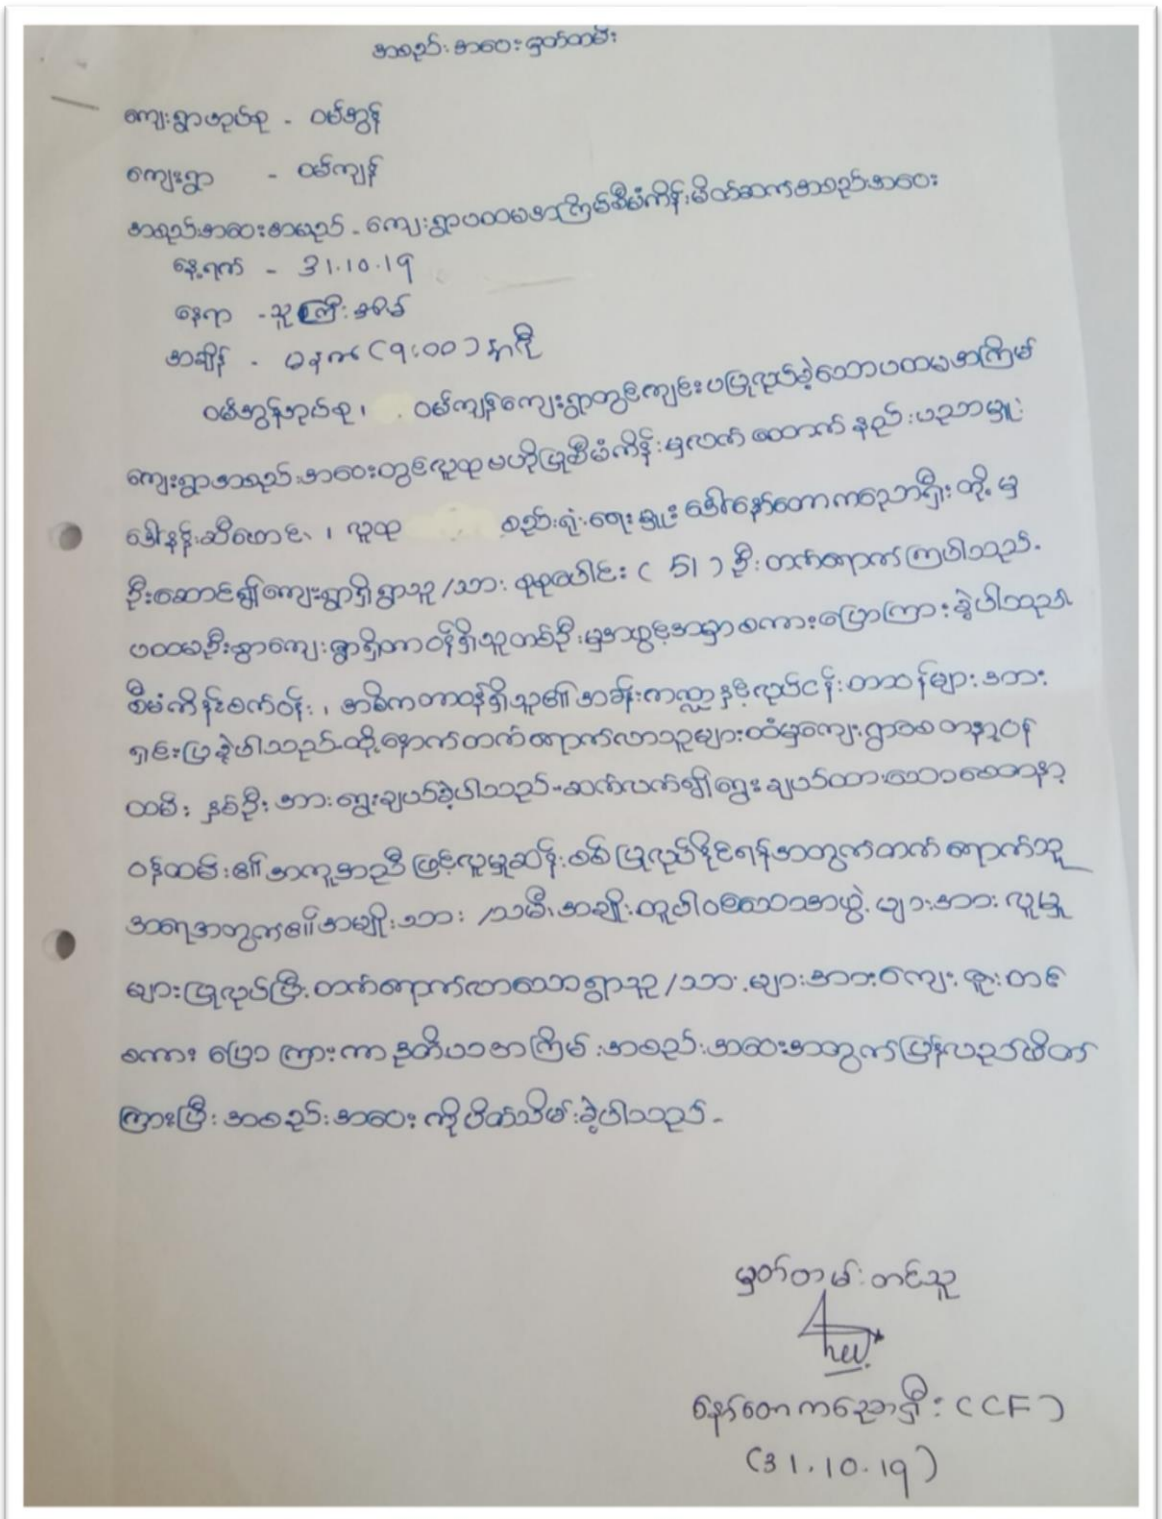 အစည်းအဝေးမှတ်တမ်း
ကျေးရွာအုပ်စု - ဝမ်အွန်
ကျေးရွာ - ဝမ်ကျန်
အစည်းအဝေးအမည် - ကျေးရွာပထမအကြိမ်စီမံကိန်းမိတ်ဆက်အစည်းအဝေး
နေ့ရက် - 31.10.19
နေရာ - သူကြီးအိမ်
အချိန် - မနက် (9:00) နာရီ
ဝမ်အွန်အုပ်စု၊ ဝမ်ကျန်ကျေးရွာတွင်ကျင်းပပြုလုပ်ခဲ့သောပထမအကြိမ်
ကျေးရွာအစည်းအဝေးတွင်လူထုဗဟိုပြုစီမံကိန်းမှလက်ထောက်နည်းပညာမှူး
ဒေါ်နန်း၊ လူထု စည်းရုံးရေးမှူး ဒေါ်နော်တောကညောရှီးတို့မှ
ဦးဆောင်၍ကျေးရွာရှိရွာသူ/သား စုစုပေါင်း (51) ဦး တက်ရောက်ကြပါသည်။
ပထမဦးစွာကျေးရွာရှိတာဝန်ရှိသူတစ်ဦးမှအဖွင့်အမှာစကားပြောကြားခဲ့ပါသည်။
စီမံကိန်းစက်ဝန်း၊ အဓိကတာဝန်ရှိသူ၏အခန်းကဏ္ဍနှင့်လုပ်ငန်းတာဝန်များအား
ရှင်းပြခဲ့ပါသည်။ထို့နောက်တက်ရောက်လာသူများထံမှကျေးရွာစေတနာ့ဝန်
ထမ်း နှစ်ဦးအားရွေးချယ်ခဲ့ပါသည်။ဆက်လက်၍ရွေးချယ်ထားသောစေတနာ့
ဝန်ထမ်း၏အကူအညီဖြင့်လူမှုဆန်းစစ်ပြုလုပ်နိုင်ရန်အတွက်တက်ရောက်သူ
အရေအတွက်၏အမျိုးသား /သမီးအချိုးတူပါဝင်သောအဖွဲ့များအား လူမှု
များပြုလုပ်ပြီးတက်ရောက်လာသောရွာသူ/သားများအားကျေးဇူးတင်
စကား ပြောကြားကာဒုတိယအကြိမ်အစည်းအဝေးအတွက်ပြန်လည်ဖိတ်
ကြားပြီးအစည်းအဝေးကိုပိတ်သိမ်းခဲ့ပါသည်။
မှတ်တမ်းတင်သူ
နော်တောကညောရှီး (CCF)
(31.10.19)